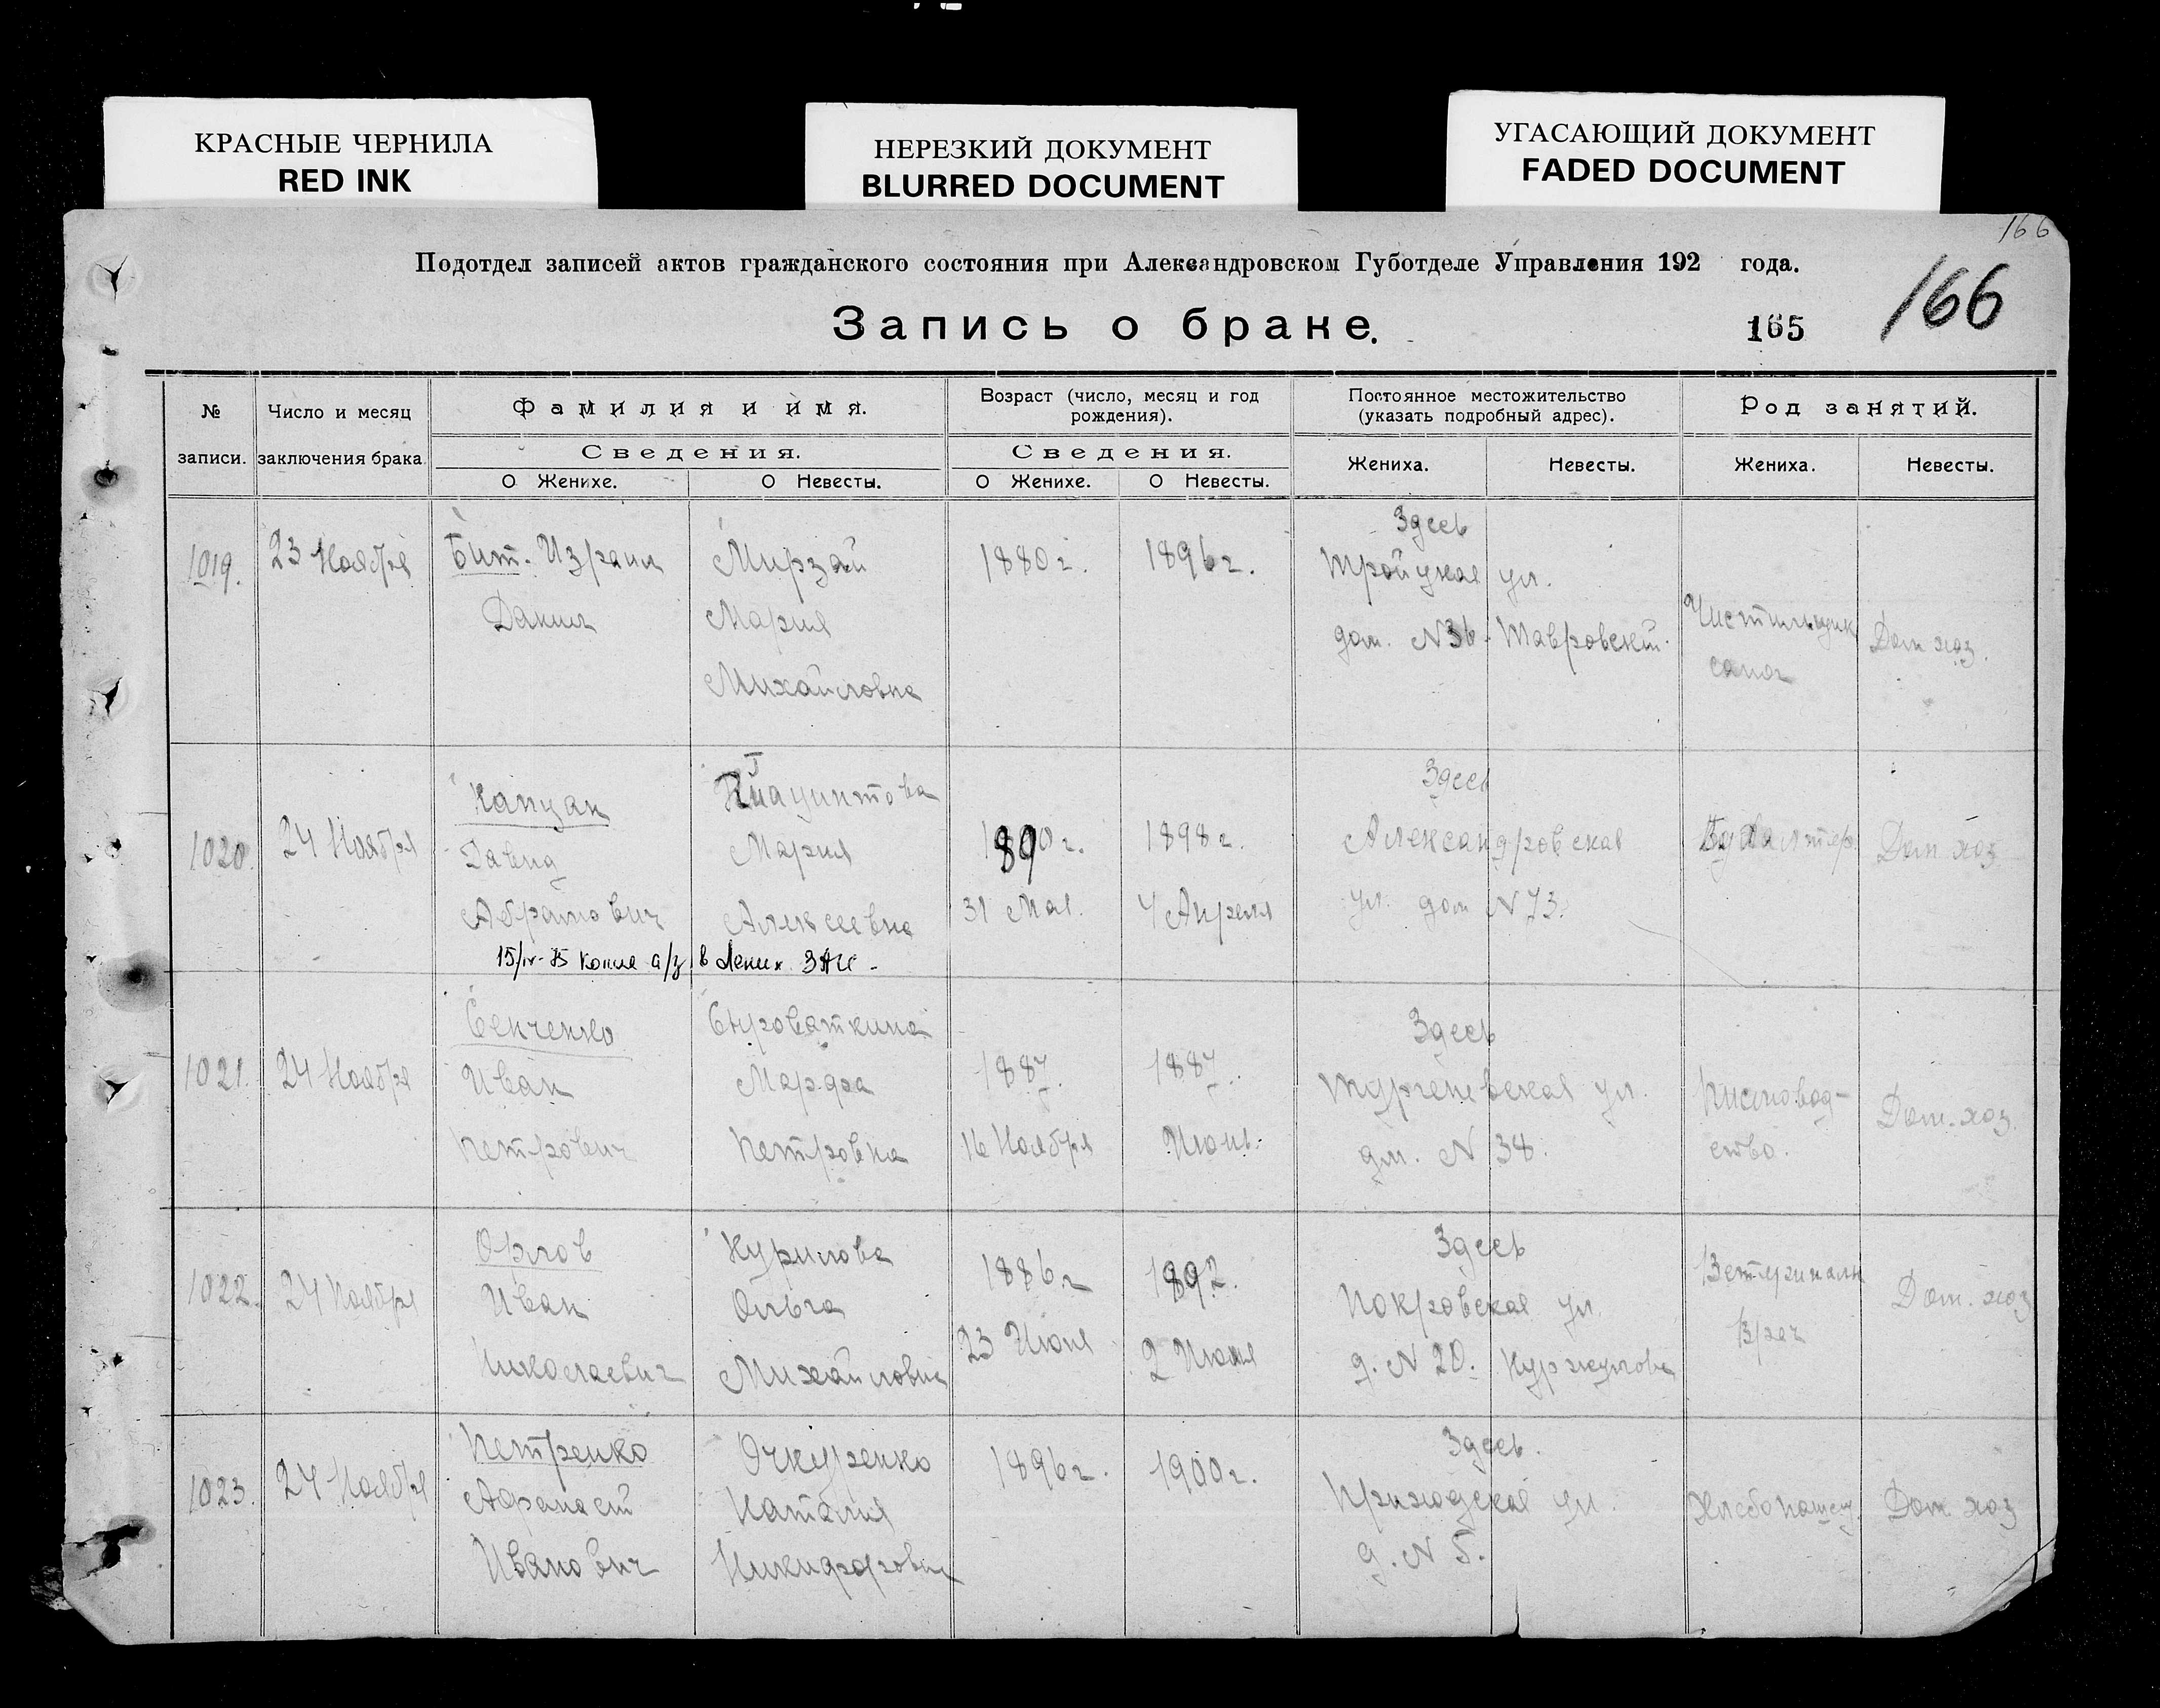 КРАСНЫЕ ЧЕРНИЛА
RED INK
НЕРЕЗКИЙ ДОКУМЕНТ
BLURRED DOCUMENT
УГАСАЮЩИЙ ДОКУМЕНТ
FADED DOCUMENT
166
Подотдел записей актов гражданского состояния при Александровском Губотделе Управления 192 года.
166
Запись о браке.
165
№ записи.
Число и месяц заключения брака.
Фамилия и имя.
Возраст (число, месяц и год рождения).
Постоянное местожительство (указать подробный адрес).
Род занятий.
Сведения.
Сведения.
Жениха.
Невесты.
Жениха.
Невесты.
О Женихе.
О Невесты.
О Женихе.
О Невесты.
1019.
23 Ноября
Бит. Израил
Данил
Мирзай
Мария
Михайловна
1880 г.
1896 г.
Здесь
Тройцкая ул.
дом. №36.
Чистильщик
сапог
Дом хоз.
1020.
24 Ноября
Капцан
Давид
Абрамович
Мария
Алексеевна
31 Мая.
1898 г.
4 Апреля
Здесь
Александровская
ул. дом №73.
Бухгалтер.
Дом хоз.
15/IV- Копия а/з в Ленин. ЗАГС -
1021.
24 Ноября
Сенченко
Иван
Петрович
Сыроваткина
Марфа
Петровна
1887.
16 Ноября
1887.
Июнь.
Здесь
Тургеневская ул.
дм. № 34.
ство.
Дом. хоз.
1022.
24 Ноября
Орлов
Иван
Николаевич
Курилова
Ольга
Михайловна
1886 г
23 Июня
1892.
2 Июля
Здесь
Покровская ул.
д. № 20.
Ветеринарн
Врач
Дом. хоз
1023.
24 Ноября
Петренко
Афанасий
Иванович
Очкуренко
Наталия
Никифоровна
1896 г.
1900 г.
Здесь.
ул.
д. № 5.
Хлебопашец.
Дом хоз